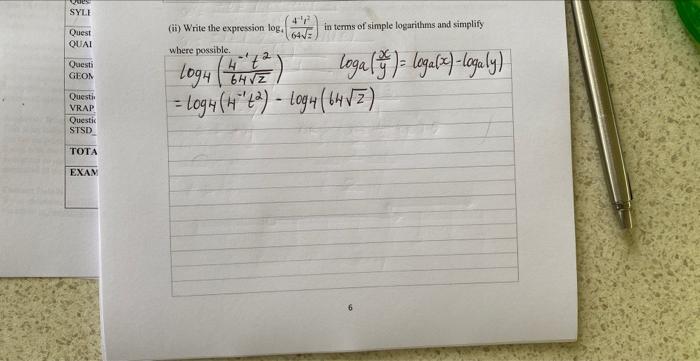 Ques
SYLF
Quest
QUAI
Questi
GEOM
Questi
VRAP
Questio
STSD_
TOTA
EXAM
(ii) Write the expression log₄(4⁻¹t²/64√z) in terms of simple logarithms and simplify
where possible.
log₄(4⁻¹t²/64√z) logₐ(x/y) = logₐ(x) - logₐ(y)
= log₄(4⁻¹t²) - log₄(64√z)
6